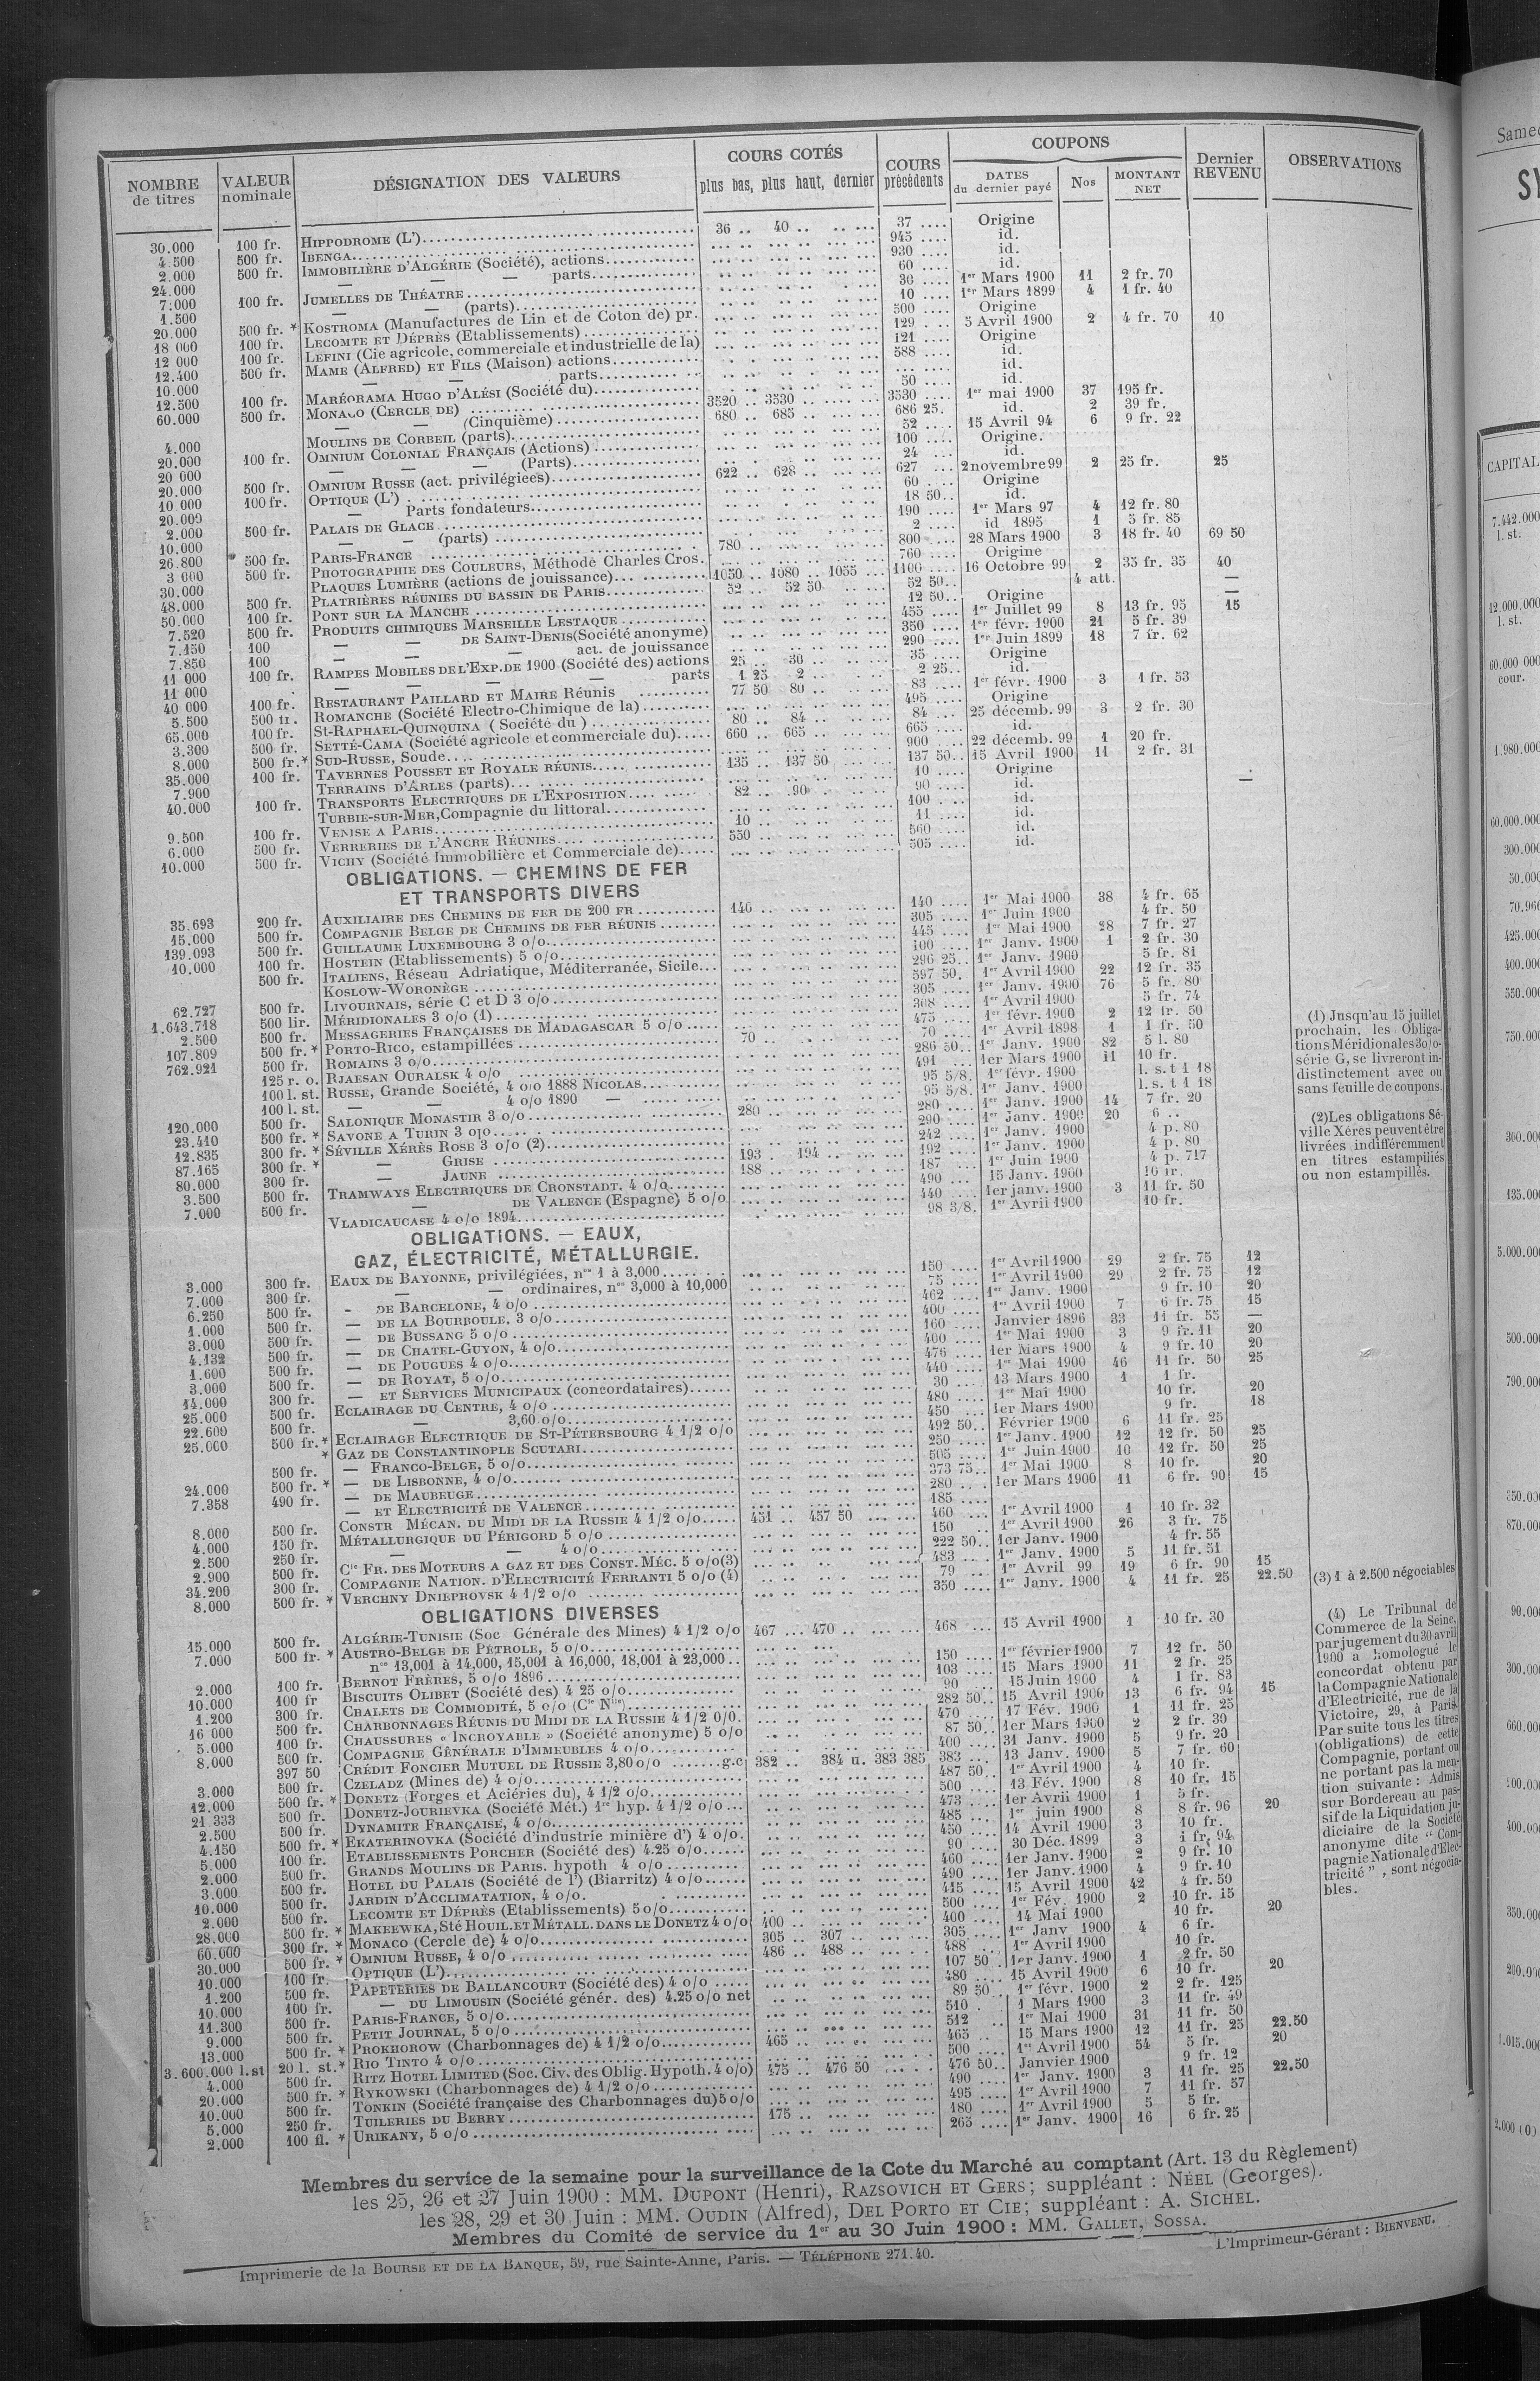 NOMBRE de titres | VALEUR nominale | DÉSIGNATION DES VALEURS | COURS COTÉS plus bas, plus haut, dernier | COURS précédents | COUPONS DATES du dernier payé | Nos | MONTANT NET | Dernier REVENU | OBSERVATIONS
30.000 100 fr. HIPPODROME (L') 36 .. 40 .. 37 .... Origine
4.500 500 fr. IBENGA 945 .... id.
2.000 500 fr. IMMOBILIÈRE D'ALGÉRIE (Société), actions 930 .... id.
24.000 — — parts 60 .... id.
7.000 100 fr. JUMELLES DE THÉATRE 30 .... 1er Mars 1900 11 2 fr. 70
1.500 — — (parts) 10 .... 1er Mars 1899 4 1 fr. 40
20.000 500 fr. * KOSTROMA (Manufactures de Lin et de Coton de) pr. 500 .... Origine
18 000 100 fr. LECOMTE ET DÉPRÈS (Etablissements) 129 .... 5 Avril 1900 2 4 fr. 70 10
12 000 100 fr. LEFINI (Cie agricole, commerciale et industrielle de la) 121 .... Origine
12.400 500 fr. MAME (ALFRED) ET FILS (Maison) actions 588 .... id.
10.000 — — parts .... id.
12.500 100 fr. MARÉORAMA HUGO D'ALÉSI (Société du) 50 .... id.
60.000 500 fr. MONACO (CERCLE DE) 3520 .. 3530 .. 3530 .... 1er mai 1900 37 195 fr.
— — (Cinquième) 680 .. 685 .. 686 25. id. 2 39 fr.
4.000 MOULINS DE CORBEIL (parts) 52 .... 15 Avril 94 6 9 fr. 22
20.000 100 fr. OMNIUM COLONIAL FRANÇAIS (Actions) 100 .... Origine.
20 000 — — — (Parts) 24 .... id.
20.000 500 fr. OMNIUM RUSSE (act. privilégiées) 622 .. 628 .. 627 ... 2 novembre 99 2 25 fr. 25
10.000 100 fr. OPTIQUE (L') 60 .... Origine
20.000 — Parts fondateurs 18 50.. id.
2.000 500 fr. PALAIS DE GLACE 190 .... 1er Mars 97 4 12 fr. 80
10.000 — — (parts) 2 .... id 1895 1 5 fr. 85
26.800 500 fr. PARIS-FRANCE 780 .. 800 .... 28 Mars 1900 3 18 fr. 40 69 50
3 000 500 fr. PHOTOGRAPHIE DES COULEURS, Méthode Charles Cros. 760 .... Origine
30.000 PLAQUES LUMIÈRE (actions de jouissance) 1050 .. 1080 .. 1055 ... 1100 .... 16 Octobre 99 2 35 fr. 35 40
48.000 500 fr. PLATRIÈRES RÉUNIES DU BASSIN DE PARIS 52 .. 52 50 52 50.. 4 att. —
50.000 100 fr. PONT SUR LA MANCHE 12 50.. Origine —
7.520 500 fr. PRODUITS CHIMIQUES MARSEILLE LESTAQUE 455 .... 1er Juillet 99 8 13 fr. 95 15
7.150 100 — — DE SAINT-DENIS (Société anonyme) 350 .... 1er févr. 1900 21 5 fr. 39
7.850 100 — — — act. de jouissance 290 .... 1er Juin 1899 18 7 fr. 62
11 000 100 fr. RAMPES MOBILES DE L'EXP. DE 1900 (Société des) actions 25 .. 30 .. 35 .... Origine
11 000 — — — — parts 1 25 2 .. 2 25.. id.
40 000 100 fr. RESTAURANT PAILLARD ET MAIRE Réunis 77 50 80 .. 83 .... 1er févr. 1900 3 1 fr. 53
5.500 500 fr. ROMANCHE (Société Electro-Chimique de la) 495 .... Origine
65.000 100 fr. St-RAPHAEL-QUINQUINA (Société du) 80 .. 84 .. 84 ... 25 décemb. 99 3 2 fr. 30
3.300 500 fr. SETTÉ-CAMA (Société agricole et commerciale du) 660 .. 665 .. 665 .... id.
8.000 500 fr.* SUD-RUSSE, Soude 900 .... 22 décemb. 99 1 20 fr.
35.000 100 fr. TAVERNES POUSSET ET ROYALE RÉUNIS 135 .. 137 50 137 50.. 15 Avril 1900 11 2 fr. 31
7.900 TERRAINS D'ARLES (parts) 10 .... Origine
40.000 100 fr. TRANSPORTS ELECTRIQUES DE L'EXPOSITION 82 .. 90 . 90 .... id. —
TURBIE-SUR-MER, Compagnie du littoral 100 .... id.
9.500 100 fr. VENISE A PARIS 10 .. 11 .... id.
6.000 500 fr. VERRERIES DE L'ANCRE RÉUNIES 550 .. 560 .... id.
10.000 500 fr. VICHY (Société Immobilière et Commerciale de) 505 .... id.
OBLIGATIONS. — CHEMINS DE FER
ET TRANSPORTS DIVERS
35.693 200 fr. AUXILIAIRE DES CHEMINS DE FER DE 200 FR 140 .. 140 .... 1er Mai 1900 38 4 fr. 65
15.000 500 fr. COMPAGNIE BELGE DE CHEMINS DE FER RÉUNIS 305 .... 1er Juin 1900 4 fr. 50
139.093 500 fr. GUILLAUME LUXEMBOURG 3 o/o 445 .... 1er Mai 1900 28 7 fr. 27
10.000 100 fr. HOSTEIN (Etablissements) 5 o/o 100 .... 1er Janv. 1900 1 2 fr. 30
500 fr. ITALIENS, Réseau Adriatique, Méditerranée, Sicile 296 25.. 1er Janv. 1900 5 fr. 81
KOSLOW-WORONÈGE 597 50. 1er Avril 1900 22 12 fr. 35
62.727 500 fr. LIVOURNAIS, série C et D 3 o/o 305 .... 1er Janv. 1900 76 5 fr. 80
1.643.718 500 lir. MÉRIDIONALES 3 o/o (1) 308 .... 1er Avril 1900 5 fr. 74
2.500 500 fr. MESSAGERIES FRANÇAISES DE MADAGASCAR 5 o/o 475 .... 1er févr. 1900 2 12 fr. 50
107.809 500 fr.* PORTO-RICO, estampillées 70 .. 70 .... 1er Avril 1898 1 1 fr. 50
762.921 500 fr. ROMAINS 3 o/o 286 50.. 1er Janv. 1900 82 5 l. 80
125 r. o. RJAESAN OURALSK 4 o/o 491 ... 1er Mars 1900 11 10 fr.
100 l. st. RUSSE, Grande Société, 4 o/o 1888 NICOLAS 95 5/8. 1er févr. 1900 l. s. t 1 18
100 l. st. — — 4 o/o 1890 — 95 5/8. 1er Janv. 1900 l. s. t 1 18
120.000 500 fr. SALONIQUE MONASTIR 3 o/o 280 .. 280 .... 1er Janv. 1900 14 7 fr. 20
23.410 500 fr. * SAVONE A TURIN 3 o/o 290 .... 1er Janv. 1900 20 6 ..
12.835 300 fr. * SÉVILLE XÉRÈS ROSE 3 o/o (2) 242 .... 1er Janv. 1900 4 p. 80
87.165 300 fr. * — GRISE 193 . 194 .. 192 .... 1er Janv. 4 p. 80
80.000 300 fr. — JAUNE 188 .. 187 ... 1er Juin 1900 4 p. 717
3.500 500 fr. TRAMWAYS ELECTRIQUES DE CRONSTADT. 4 o/o 490 ... 15 Janv. 1900 10 fr.
7.000 500 fr. — DE VALENCE (Espagne) 5 o/o 440 .... 1er janv. 1900 3 11 fr. 50
VLADICAUCASE 4 o/o 1894 98 3/8. 1er Avril 1900 10 fr.
OBLIGATIONS. — EAUX,
GAZ, ÉLECTRICITÉ, MÉTALLURGIE.
3.000 300 fr. EAUX DE BAYONNE, privilégiées, nos 1 à 3,000 150 .... 1er Avril 1900 29 2 fr. 75 12
7.000 300 fr. — — ordinaires, nos 3,000 à 10,000 75 .... 1er Avril 1900 29 2 fr. 75 12
6.250 500 fr. — DE BARCELONE, 4 o/o 462 .... 1er Janv. 1900 9 fr. 10 20
1.000 500 fr. — DE LA BOURBOULE, 3 o/o 400 .... 1er Avril 1900 7 6 fr. 75 15
3.000 500 fr. — DE BUSSANG 5 o/o 160 .... Janvier 1896 33 11 fr. 55 —
4.132 500 fr. — DE CHATEL-GUYON, 4 o/o 400 .... 1er Mai 1900 3 9 fr. 11 20
1.600 500 fr. — DE POUGUES 4 o/o 476 .... 1er Mars 1900 4 9 fr. 10 20
3.000 500 fr. — DE ROYAT, 5 o/o 440 .... 1er Mai 1900 46 11 fr. 50 25
14.000 300 fr. — ET SERVICES MUNICIPAUX (concordataires) 30 .... 13 Mars 1900 1 1 fr.
25.000 500 fr. ECLAIRAGE DU CENTRE, 4 o/o 480 .... 1er Mai 1900 10 fr. 20
22.600 500 fr. — 3,60 o/o 450 ... 1er Mars 1900 9 fr. 18
25.000 500 fr.* ECLAIRAGE ELECTRIQUE DE ST-PÉTERSBOURG 4 1/2 o/o 492 50.. Février 1900 6 11 fr. 25
* GAZ DE CONSTANTINOPLE SCUTARI 250 .... 1er Janv. 1900 12 12 fr. 50 25
500 fr. — FRANCO-BELGE, 5 o/o 505 .... 1er Juin 1900 10 12 fr. 50 25
24.000 500 fr. * — DE LISBONNE, 4 o/o 373 75.. 1er Mai 1900 8 10 fr. 20
7.358 490 fr. — DE MAUBEUGE 280 .... 1er Mars 1900 11 6 fr. 90 15
— ET ELECTRICITÉ DE VALENCE 185 ....
8.000 500 fr. CONSTR MÉCAN. DU MIDI DE LA RUSSIE 4 1/2 o/o 451 .. 457 50 460 ... 1er Avril 1900 1 10 fr. 32
4.000 150 fr. MÉTALLURGIQUE DU PÉRIGORD 5 o/o 150 .. 1er Avril 1900 26 3 fr. 75
2.500 250 fr. — — 4 o/o 222 50.. 1er Janv. 1900 4 fr. 55
2.900 500 fr. Cie FR. DES MOTEURS A GAZ ET DES CONST. MÉC. 5 o/o (3) 483 .... 1er Janv. 1900 5 11 fr. 51
34.200 300 fr. COMPAGNIE NATION. D'ELECTRICITÉ FERRANTI 5 o/o (4) 79 ... 1er Avril 99 19 6 fr. 90 15
8.000 500 fr. * VERCHNY DNIEPROVSK 4 1/2 o/o 350 .... 1er Janv. 1900 4 11 fr. 25 22.50
OBLIGATIONS DIVERSES
15.000 500 fr. ALGÉRIE-TUNISIE (Soc Générale des Mines) 4 1/2 o/o 467 ... 470 .. 468 ... 15 Avril 1900 1 10 fr. 30
7.000 500 fr. * AUSTRO-BELGE DE PÉTROLE, 5 o/o
nos 13,001 à 14,000, 15,001 à 16,000, 18,001 à 23,000 150 .... 1er février 1900 7 12 fr. 50
2.000 100 fr. BERNOT FRÈRES, 5 o/o 1896 103 .... 15 Mars 1900 11 2 fr. 25
10.000 100 fr BISCUITS OLIBET (Société des) 4 25 o/o 90 ... 15 Juin 1900 4 1 fr. 83
1.200 300 fr. CHALETS DE COMMODITÉ, 5 o/o (Cie Nlle) 282 50.. 15 Avril 1900 13 6 fr. 94 15
16 000 500 fr. CHARBONNAGES RÉUNIS DU MIDI DE LA RUSSIE 4 1/2 o/o. 470 .... 17 Fév. 1900 1 11 fr. 25
5.000 100 fr. CHAUSSURES « INCROYABLE » (Société anonyme) 5 o/o 87 50.. 1er Mars 1900 2 2 fr. 30
8.000 500 fr. COMPAGNIE GÉNÉRALE D'IMMEUBLES 4 o/o 400 .... 31 Janv. 1900 5 9 fr. 20
397 50 CRÉDIT FONCIER MUTUEL DE RUSSIE 3,80 o/o g.c 382 .. 384 u. 383 385 383 ... 13 Janv. 1900 5 7 fr. 60
3.000 500 fr. CZELADZ (Mines de) 4 o/o 487 50.. 1er Avril 1900 4 10 fr.
12.000 500 fr. * DONETZ (Forges et Aciéries du), 4 1/2 o/o 500 .... 13 Fév. 1900 8 10 fr. 15
21.333 500 fr. DONETZ-JOURIEVKA (Société Mét.) 1re hyp. 4 1/2 o/o 473 .... 1er Avril 1900 1 5 fr.
2.500 500 fr. DYNAMITE FRANÇAISE, 4 o/o 485 ... 1er juin 1900 8 8 fr. 96 20
4.150 500 fr. * EKATERINOVKA (Société d'industrie minière d') 4 o/o. 450 .... 14 Avril 1900 3 10 fr.
5.000 100 fr. ETABLISSEMENTS PORCHER (Société des) 4.25 o/o 90 .... 30 Déc. 1899 3 1 fr. 94
2.000 500 fr. GRANDS MOULINS DE PARIS. hypoth 4 o/o 460 .... 1er Janv. 1900 2 9 fr. 10
3.000 500 fr. HOTEL DU PALAIS (Société de l') (Biarritz) 4 o/o 490 .... 1er Janv. 1900 4 9 fr. 10
10.000 500 fr. JARDIN D'ACCLIMATATION, 4 o/o. 415 .... 15 Avril 1900 42 4 fr. 59
2.000 500 fr. LECOMTE ET DÉPRÈS (Etablissements) 5 o/o 500 .... 1er Fév. 1900 2 10 fr. 15
28.000 500 fr. * MAKEEWKA, Sté HOUIL. ET MÉTALL. DANS LE DONETZ 4 o/o 400 .. 400 .... 14 Mai 1900 10 fr. 20
60.000 300 fr. * MONACO (Cercle de) 4 o/o 305 .. 307 .. 305 .... 1er Janv 1900 4 6 fr.
30.000 500 fr. * OMNIUM RUSSE, 4 o/o 486 .. 488 .. 488 ... 1er Avril 1900 10 fr.
10.000 100 fr. OPTIQUE (L') 107 50 . 1er Janv. 1900 1 2 fr. 50
1.200 500 fr. PAPETERIES DE BALLANCOURT (Société des) 4 o/o 480 .... 15 Avril 1900 6 10 fr. 20
10.000 100 fr. — DU LIMOUSIN (Société génér. des) 4.25 o/o net 89 50 . 1er févr. 1900 2 2 fr. 125
11.300 500 fr. PARIS-FRANCE, 5 o/o 510 . 1 Mars 1900 3 11 fr. 49
9.000 500 fr. PETIT JOURNAL, 5 o/o 512 .. 1er Mai 1900 31 11 fr. 50
13.000 500 fr. * PROKHOROW (Charbonnages de) 4 1/2 o/o 465 .. 465 .. 15 Mars 1900 12 11 fr. 25 22.50
3.600.000 l.st 20 l. st.* RIO TINTO 4 o/o 500 .... 1er Avril 1900 54 5 fr. 20
4.000 500 fr. RITZ HOTEL LIMITED (Soc. Civ. des Oblig. Hypoth. 4 o/o) 475 .. 476 50 476 50.. Janvier 1900 9 fr. 12
20.000 500 fr. * RYKOWSKI (Charbonnages de) 4 1/2 o/o 490 .... 1er Janv. 1900 3 11 fr. 25 22.50
10.000 500 fr. TONKIN (Société française des Charbonnages du) 5 o/o 495 .... 1er Avril 1900 7 11 fr. 57
5.000 250 fr. TUILERIES DU BERRY 175 .. 180 .... 1er Avril 1900 5 5 fr.
2.000 100 fl. * URIKANY, 5 o/o 265 .... 1er Janv. 1900 16 6 fr. 25
(1) Jusqu'au 15 juillet
prochain, les Obliga-
tions Méridionales 3 o/o-
série G, se livreront in-
distinctement avec ou
sans feuille de coupons.
(2) Les obligations Sé-
ville Xérès peuvent être
livrées indifféremment
en titres estampillés
ou non estampillés.
(3) 1 à 2.500 négociables
(4) Le Tribunal de
Commerce de la Seine,
par jugement du 30 avril
1900 a homologué le
concordat obtenu par
la Compagnie Nationale
d'Electricité, rue de la
Victoire, 29, à Paris.
Par suite tous les titres
(obligations) de cette
Compagnie, portant ou
ne portant pas la men-
tion suivante : Admis
sur Bordereau au pas-
sif de la Liquidation ju-
diciaire de la Société
anonyme dite " Com-
pagnie Nationale d'Elec-
tricité ", sont négocia-
bles.
Membres du service de la semaine pour la surveillance de la Cote du Marché au comptant (Art. 13 du Règlement)
les 25, 26 et 27 Juin 1900 : MM. DUPONT (Henri), RAZSOVICH ET GERS; suppléant : NÉEL (Georges).
les 28, 29 et 30 Juin : MM. OUDIN (Alfred), DEL PORTO ET CIE; suppléant : A. SICHEL.
Membres du Comité de service du 1er au 30 Juin 1900 : MM. GALLET, SOSSA.
Imprimerie de la BOURSE ET DE LA BANQUE, 59, rue Sainte-Anne, Paris. — TÉLÉPHONE 271.40.
L'Imprimeur-Gérant : BIENVENU.
Same
SY
CAPITAL
7.442.000
l. st.
12.000.000
l. st.
60.000 000
cour.
1.980.000
60.000.000
300.000
50.000
70.960
425.000
400.000
550.000
750.000
300.000
135.000
5.000.000
500.000
790.000
870.000
90.000
300.000
660.000
400.000
350.000
200.000
1.015.000